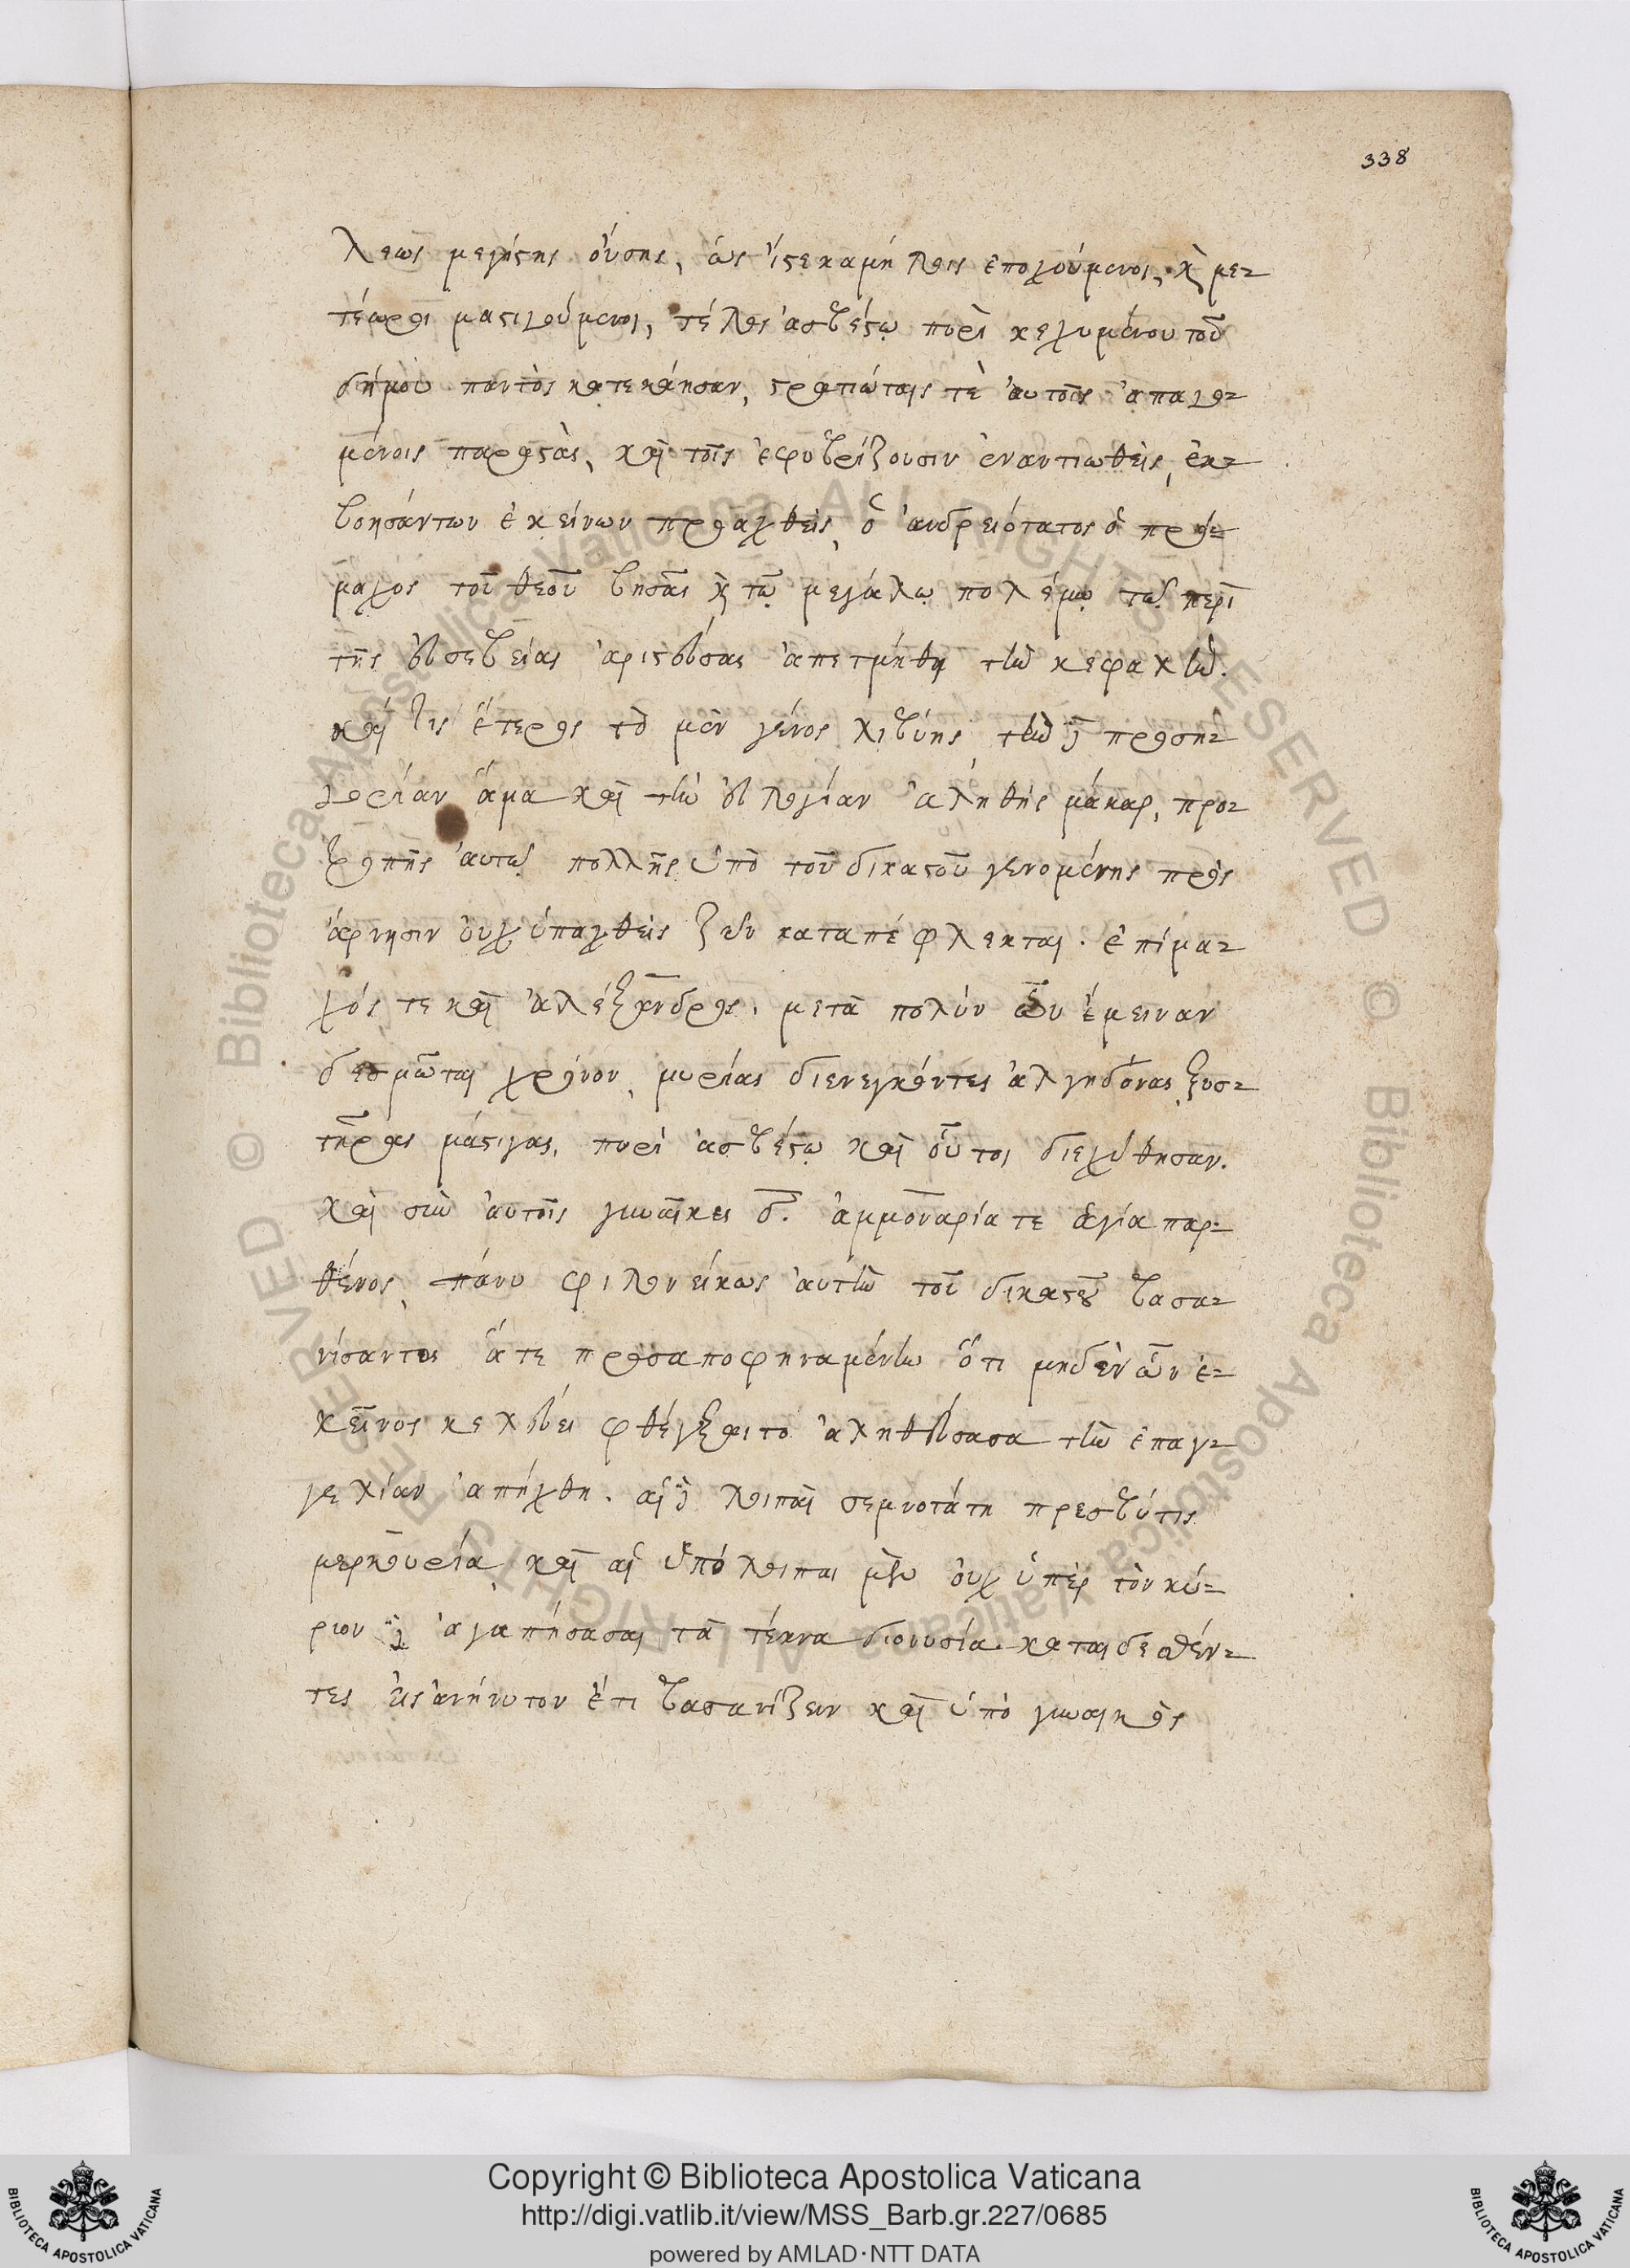 338
λεως μεγίστης οὔσης, ὡς ἴστε καμήλοις ἐποχούμενοι, κ̀ με-
τέωροι μαστιγούμενοι, τέλος ἀσβέστῳ πυρὶ κεχυμένου τοῦ
δήμου παντὸς κατεκάησαν, στρατιώταις τὲ αὐτοῖς ἀπαγο-
μένοις παραστὰς, καὶ τοῖς ἐφυβρίζουσιν ἐναντιωθεὶς, ἐκ-
βοησάντων ἐκείνων προαχθεὶς, ὁ ἀνδρειότατος ὁ πρό-
μαχος τοῦ θεοῦ βησᾶς κ̀ τῷ μεγάλῳ πολέμῳ τῷ περὶ
τῆς εὐσεβείας ἀριστεύσας ἀπετμήθη τὴν κεφαλήν.
καί τις ἕτερος τὸ μὲν γένος λιβύης, τὴν δὲ προση-
γορίαν ἅμα καὶ τὴν εὐλογίαν ἀληθὴς μάκαρ, προ-
τροπῆς αὐτῷ πολλῆς ὑπὸ τοῦ δικαστοῦ γενομένης πρὸς
ἄρνησιν οὐχ ὑπαχθεὶς ζῶν καταπέφλεκται. ἐπίμα-
χός τε καὶ ἀλέξανδρος. μετὰ πολὺν ὃν ἔμειναν
δεσμῶται χρόνον, μυρίας διενεγκόντες ἀλγηδόνας ξυσ-
τῆρας μάστιγας, πυρὶ ἀσβέστῳ καὶ οὗτοι διεχύθησαν.
καὶ σὺν αὐτοῖς γυναῖκες δ̅. ἀμμοναρία τε ἁγία παρ-
θένος, πάνυ φιλονείκως αὐτὴν τοῦ δικαστοῦ βασα-
νίσαντος ἅτε προσαποφηναμένην ὅτι μηδὲν ὧν ἐ-
κεῖνος κελεύει φθέγξαιτο ἀληθεύσασα τὴν ἐπαγ-
γελίαν ἀπήχθη. αἱ δὲ λοιπαὶ σεμνοτάτη πρεσβύτις
μερκουρία, καὶ αἱ ὑπόλοιπαι μὲν οὐχ ὑπὲρ τὸν κύ-
ριον δὲ ἀγαπήσασαι τὰ τέκνα διονυσία. καταιδεσθέν-
τες εἰς ἀνήνυτον ἔτι βασανίζειν καὶ ὑπὸ γυναικὸς
Copyright © Biblioteca Apostolica Vaticana
http://digi.vatlib.it/view/MSS_Barb.gr.227/0685
powered by AMLAD·NTT DATA
BIBLIOTECA APOSTOLICA VATICANA
BIBLIOTECA APOSTOLICA VATICANA
© Biblioteca Apostolica Vaticana ALL RIGHTS RESERVED © Biblioteca Apostolica Vaticana ALL RIGHTS RESERVED